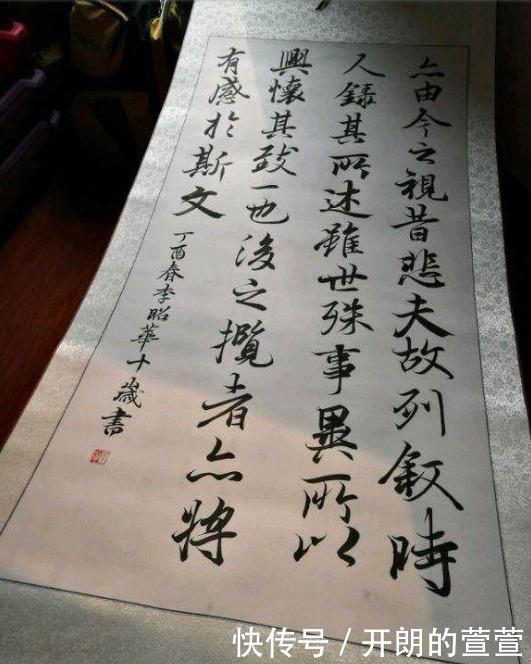 亦由今之視昔悲夫故列敘時
人錄其所述雖世殊事異所以
興懷其致一也後之攬者亦將
有感於斯文
丁酉春李昭華十歲書
快传号 / 开朗的萱萱